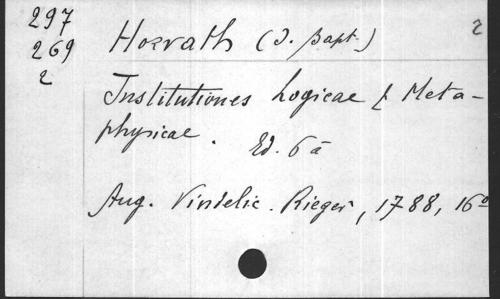 297
269
2
Horvath (J. Bapt.)
2
Institutiones Logicae & Meta-
physicae.
Ed. 6a
Aug. Vindelic. Rieger, 1788, 16º